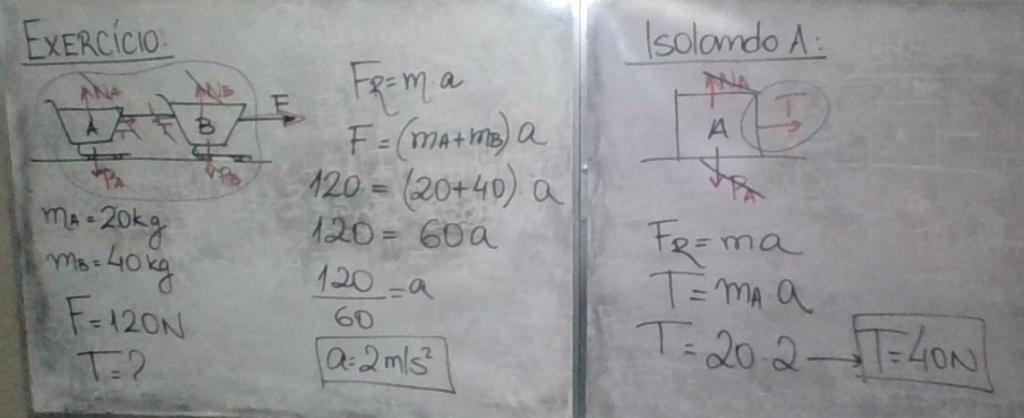 EXERCÍCIO:
NA NB
A T T B F
PA PB
mA = 20kg
mB = 40kg
F = 120N
T = ?
FR = m.a
F = (mA + mB) a
120 = (20+40) a
120 = 60a
120
60
= a
a = 2m/s²
Isolando A:
NA
A T
PA
FR = ma
T = mA.a
T = 20.2 → T = 40N